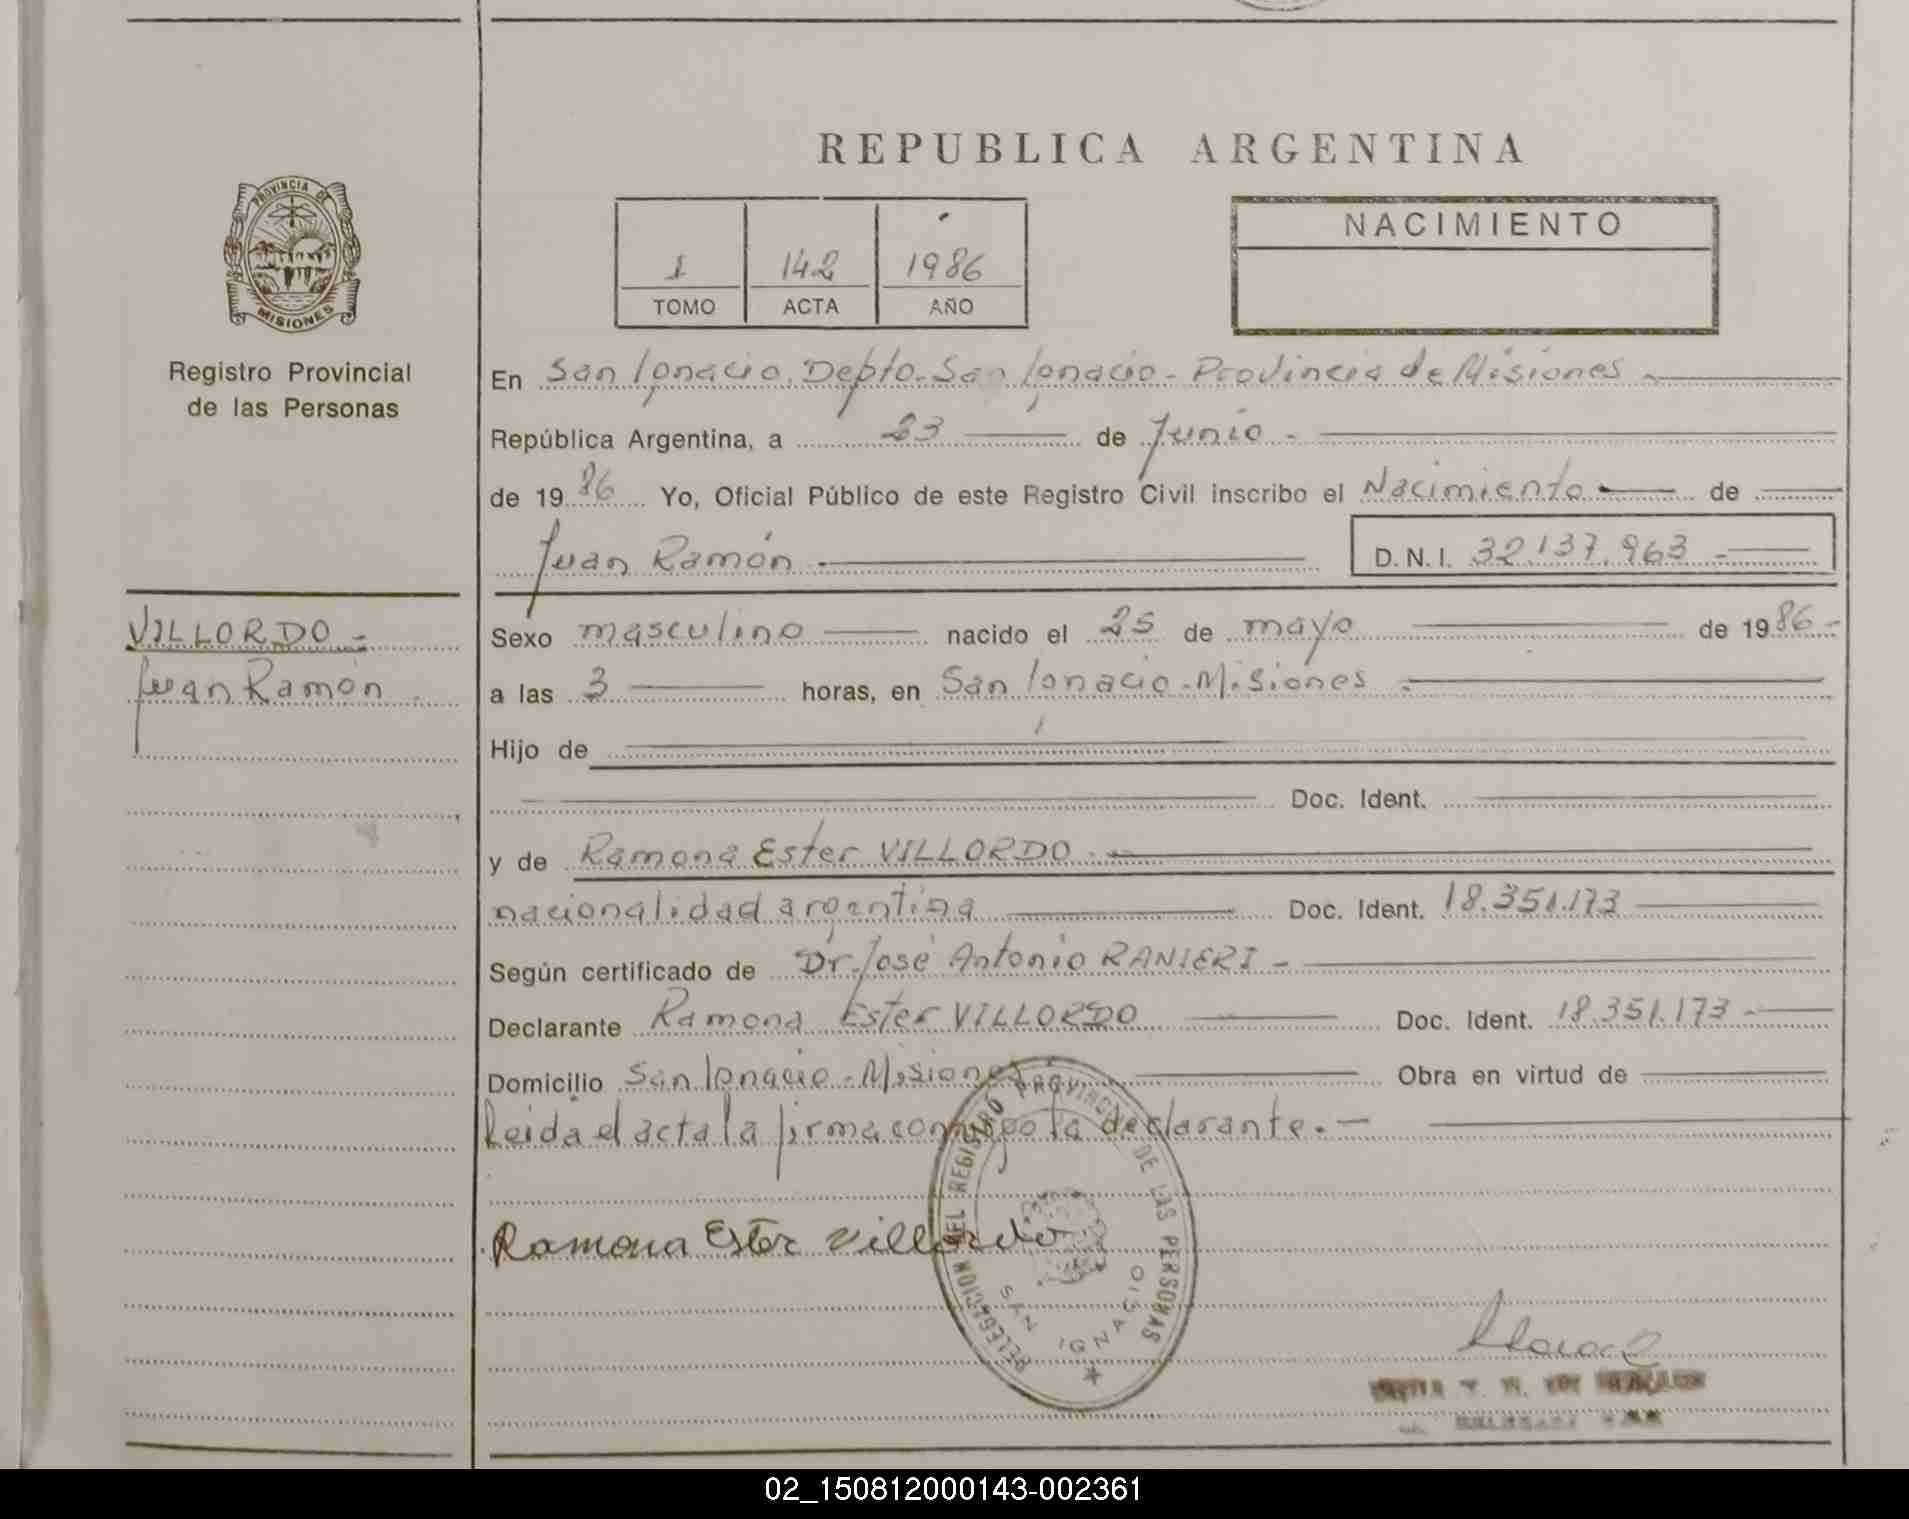 REPUBLICA ARGENTINA
PROVINCIA DE
MISIONES
Registro Provincial
de las Personas
1 142 1986
TOMO ACTA AÑO
NACIMIENTO
En San Ignacio. Depto. San Ignacio - Provincia de Misiones
República Argentina, a 23 de Junio -
de 1986 Yo, Oficial Público de este Registro Civil inscribo el Nacimiento de
Juan Ramón D.N.I. 32.137.963 -
VILLORDO -
Juan Ramón
Sexo masculino nacido el 25 de mayo de 1986 -
a las 3 horas, en San Ignacio - Misiones
Hijo de
Doc. Ident.
y de Ramona Ester VILLORDO
nacionalidad argentina Doc. Ident. 18.351.173
Según certificado de Dr. José Antonio RANIERI -
Declarante Ramona Ester VILLORDO Doc. Ident. 18.351.173 -
Domicilio San Ignacio - Misiones Obra en virtud de
Leida el acta la firma conmigo la declarante. -
Ramona Ester Villordo
DELEGACION DEL REGISTRO PROVINCIAL DE LAS PERSONAS
SAN IGNACIO
02_150812000143-002361